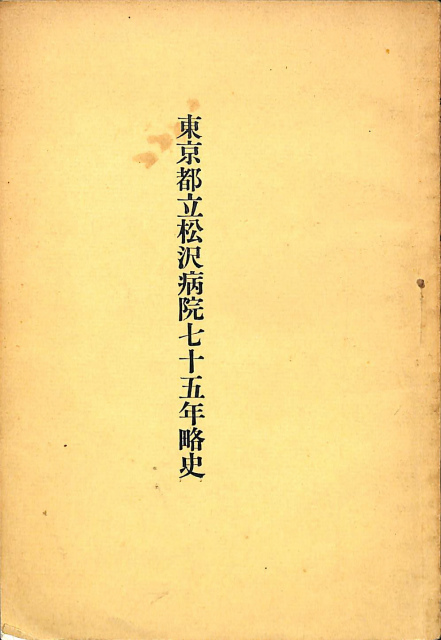 東京都立松沢病院七十五年略史